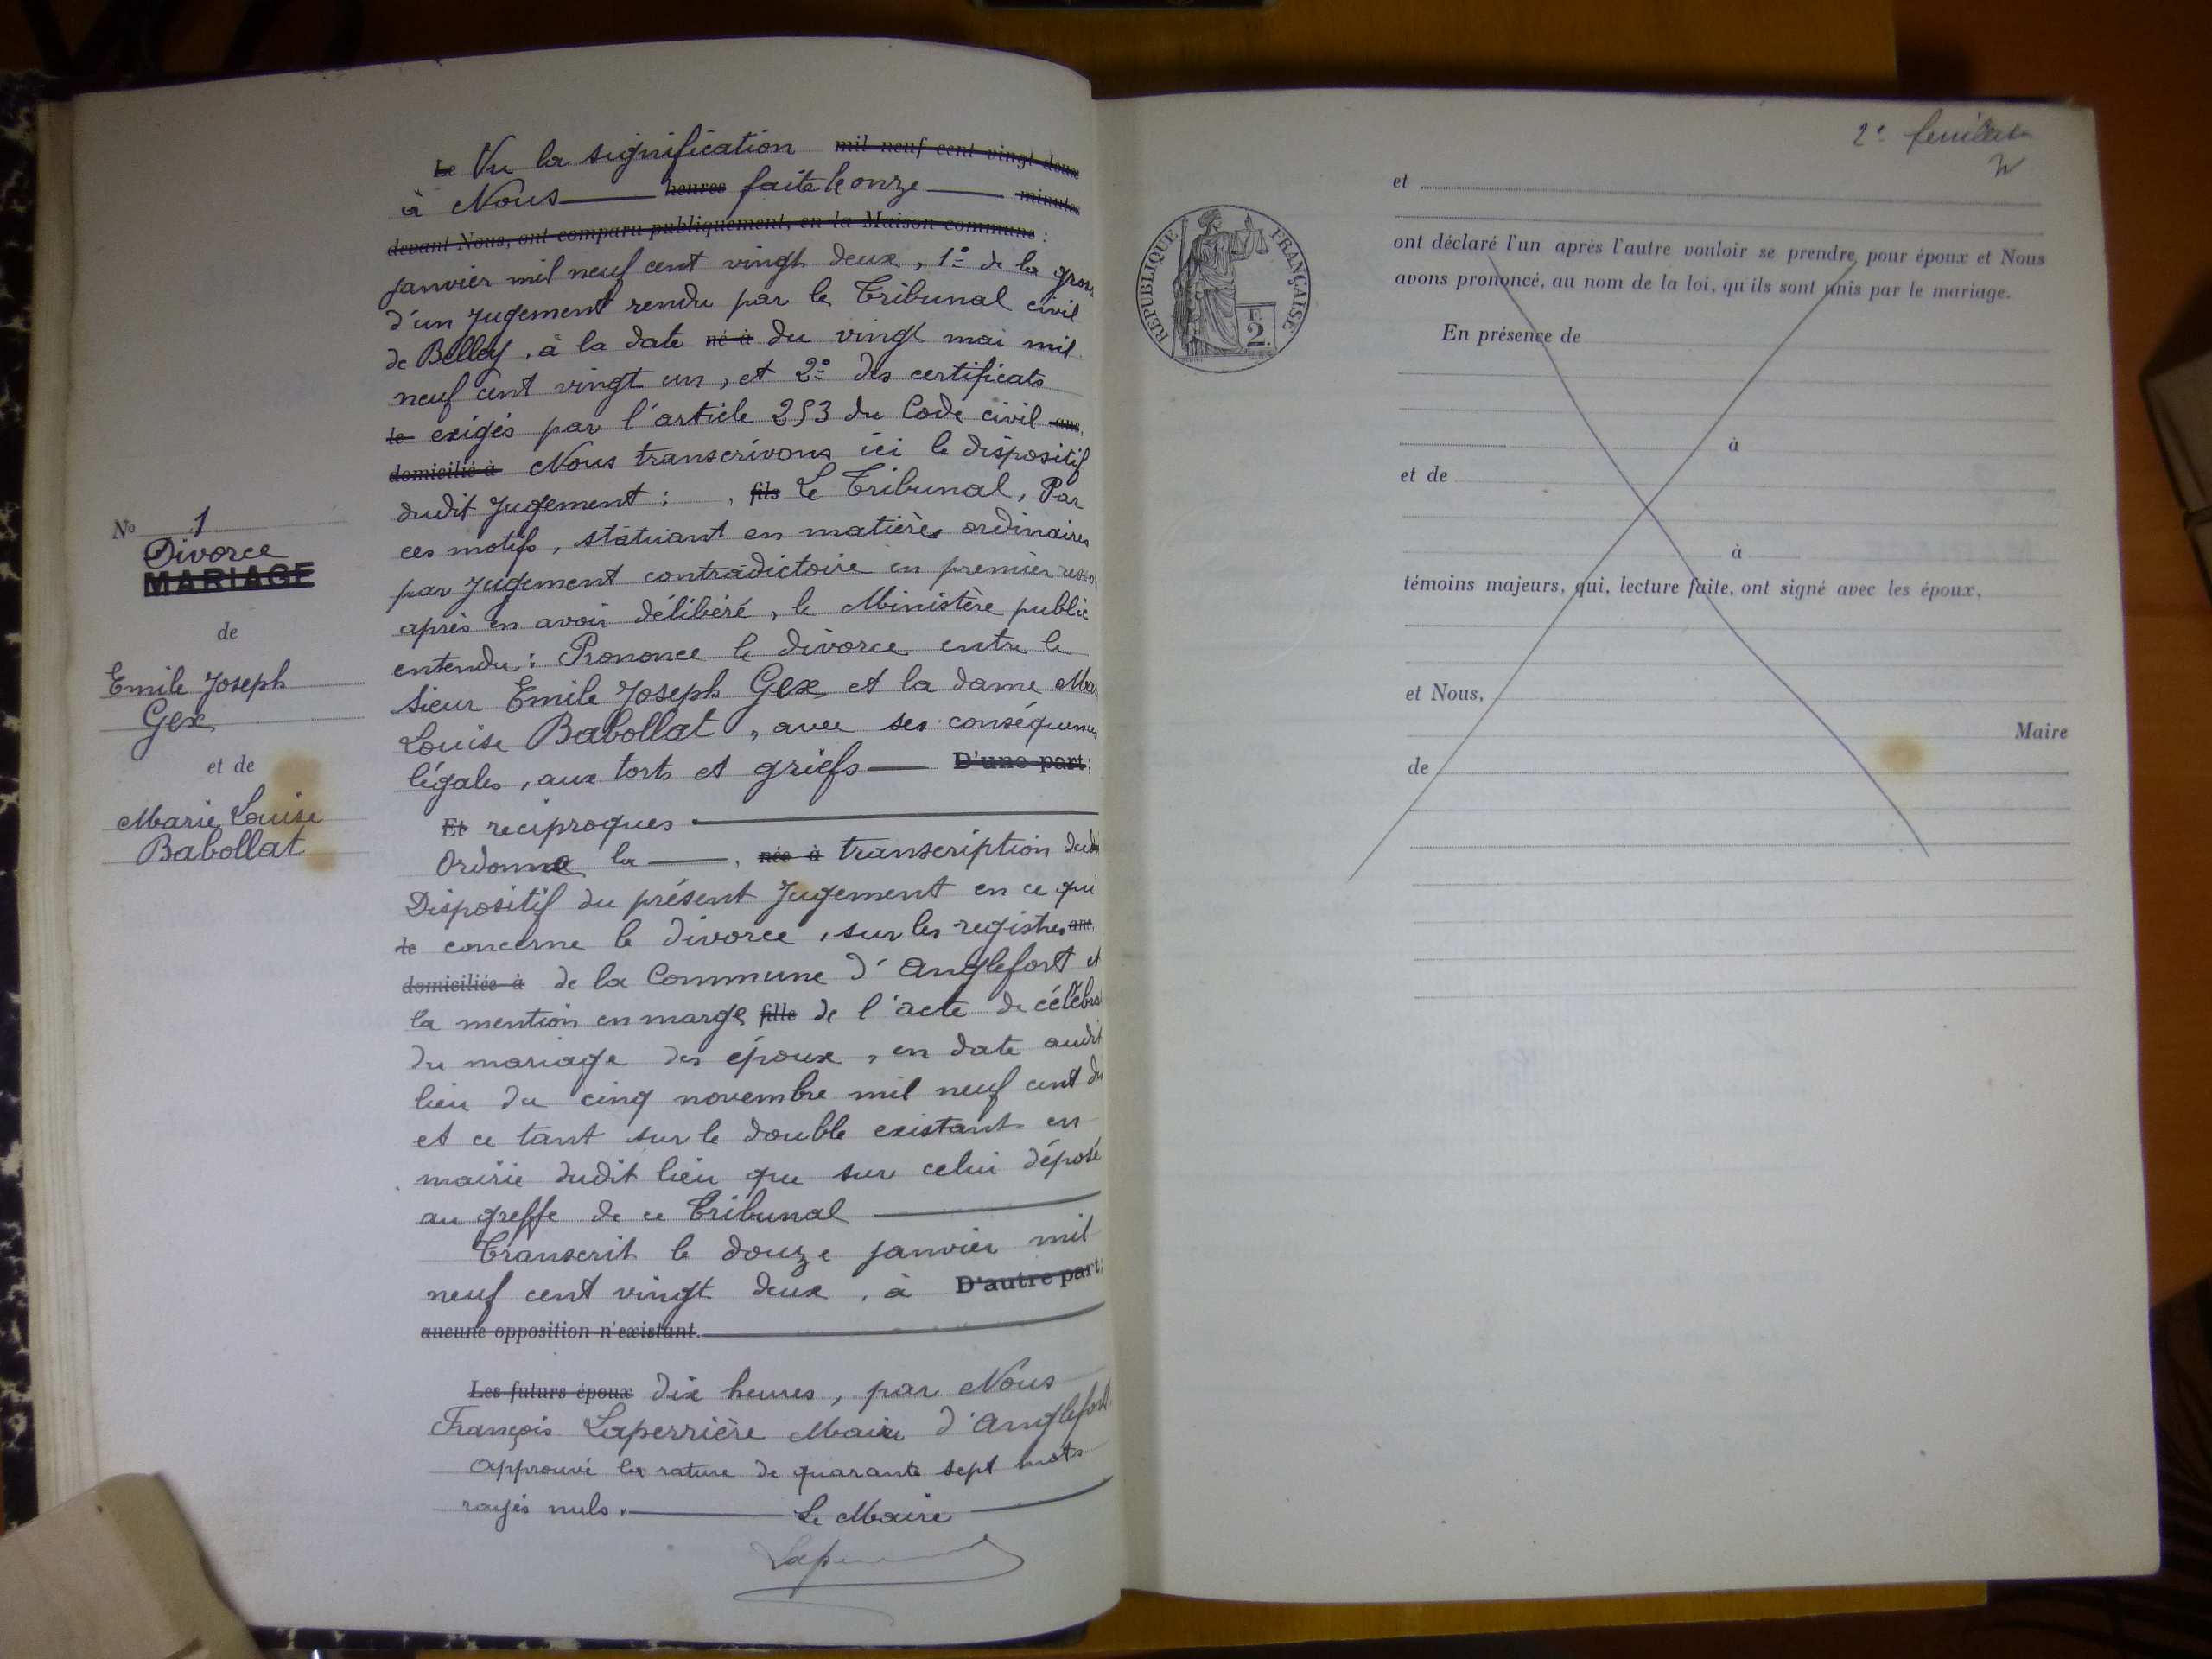 Le Vu la signification mil neuf cent vingt-deux
à Nous heures faite le onze minutes
devant Nous, ont comparu publiquement, en la Maison commune :
janvier mil neuf cent vingt deux, 1º de la gros
d'un Jugement rendu par le Tribunal civil
de Belley, à la date né à du vingt mai mil
neuf cent vingt un, et 2º des certificats
le exigés par l'article 253 du Code civil ans,
domicilié à Nous transcrivons ici le dispositif
dudit Jugement : , fils Le Tribunal, Par
ces motifs, statuant en matières ordinaires
par Jugement contradictoire en premier resso
après en avoir délibéré, le Ministère public
entendu : Prononce le divorce entre le
sieur Emile Joseph Gex et la dame Ma
Louise Babollat, avec ses conséquences
légales, aux torts et griefs D'une part;
Et réciproques
Ordonne la , née à transcription dudi
Dispositif du présent Jugement en ce qui
le concerne le divorce, sur les registres ans,
domiciliée à de la Commune d'Anglefort et
la mention en marge fille de l'acte de célébra
du mariage des époux, en date audit
lieu du cinq novembre mil neuf cent
et ce tant sur le double existant en
mairie dudit lieu que sur celui déposé
au greffe de ce Tribunal
Transcrit le douze janvier mil
neuf cent vingt deux, à D'autre part;
aucune opposition n'existant.
Les futurs époux dix heures, par Nous
François Laperrière Maire d'Anglefort.
Approuvé la rature de quarante sept mots
rayés nuls. Le Maire
Nº 1
Divorce
MARIAGE
de
Emile Joseph
Gex
et de
Marie Louise
Babollat
2e
RÉPUBLIQUE FRANÇAISE
F.
2.
et
ont déclaré l'un après l'autre vouloir se prendre pour époux et Nous
avons prononcé, au nom de la loi, qu'ils sont unis par le mariage.
En présence de
à
et de
à
témoins majeurs, qui, lecture faite, ont signé avec les époux,
et Nous,
Maire
de